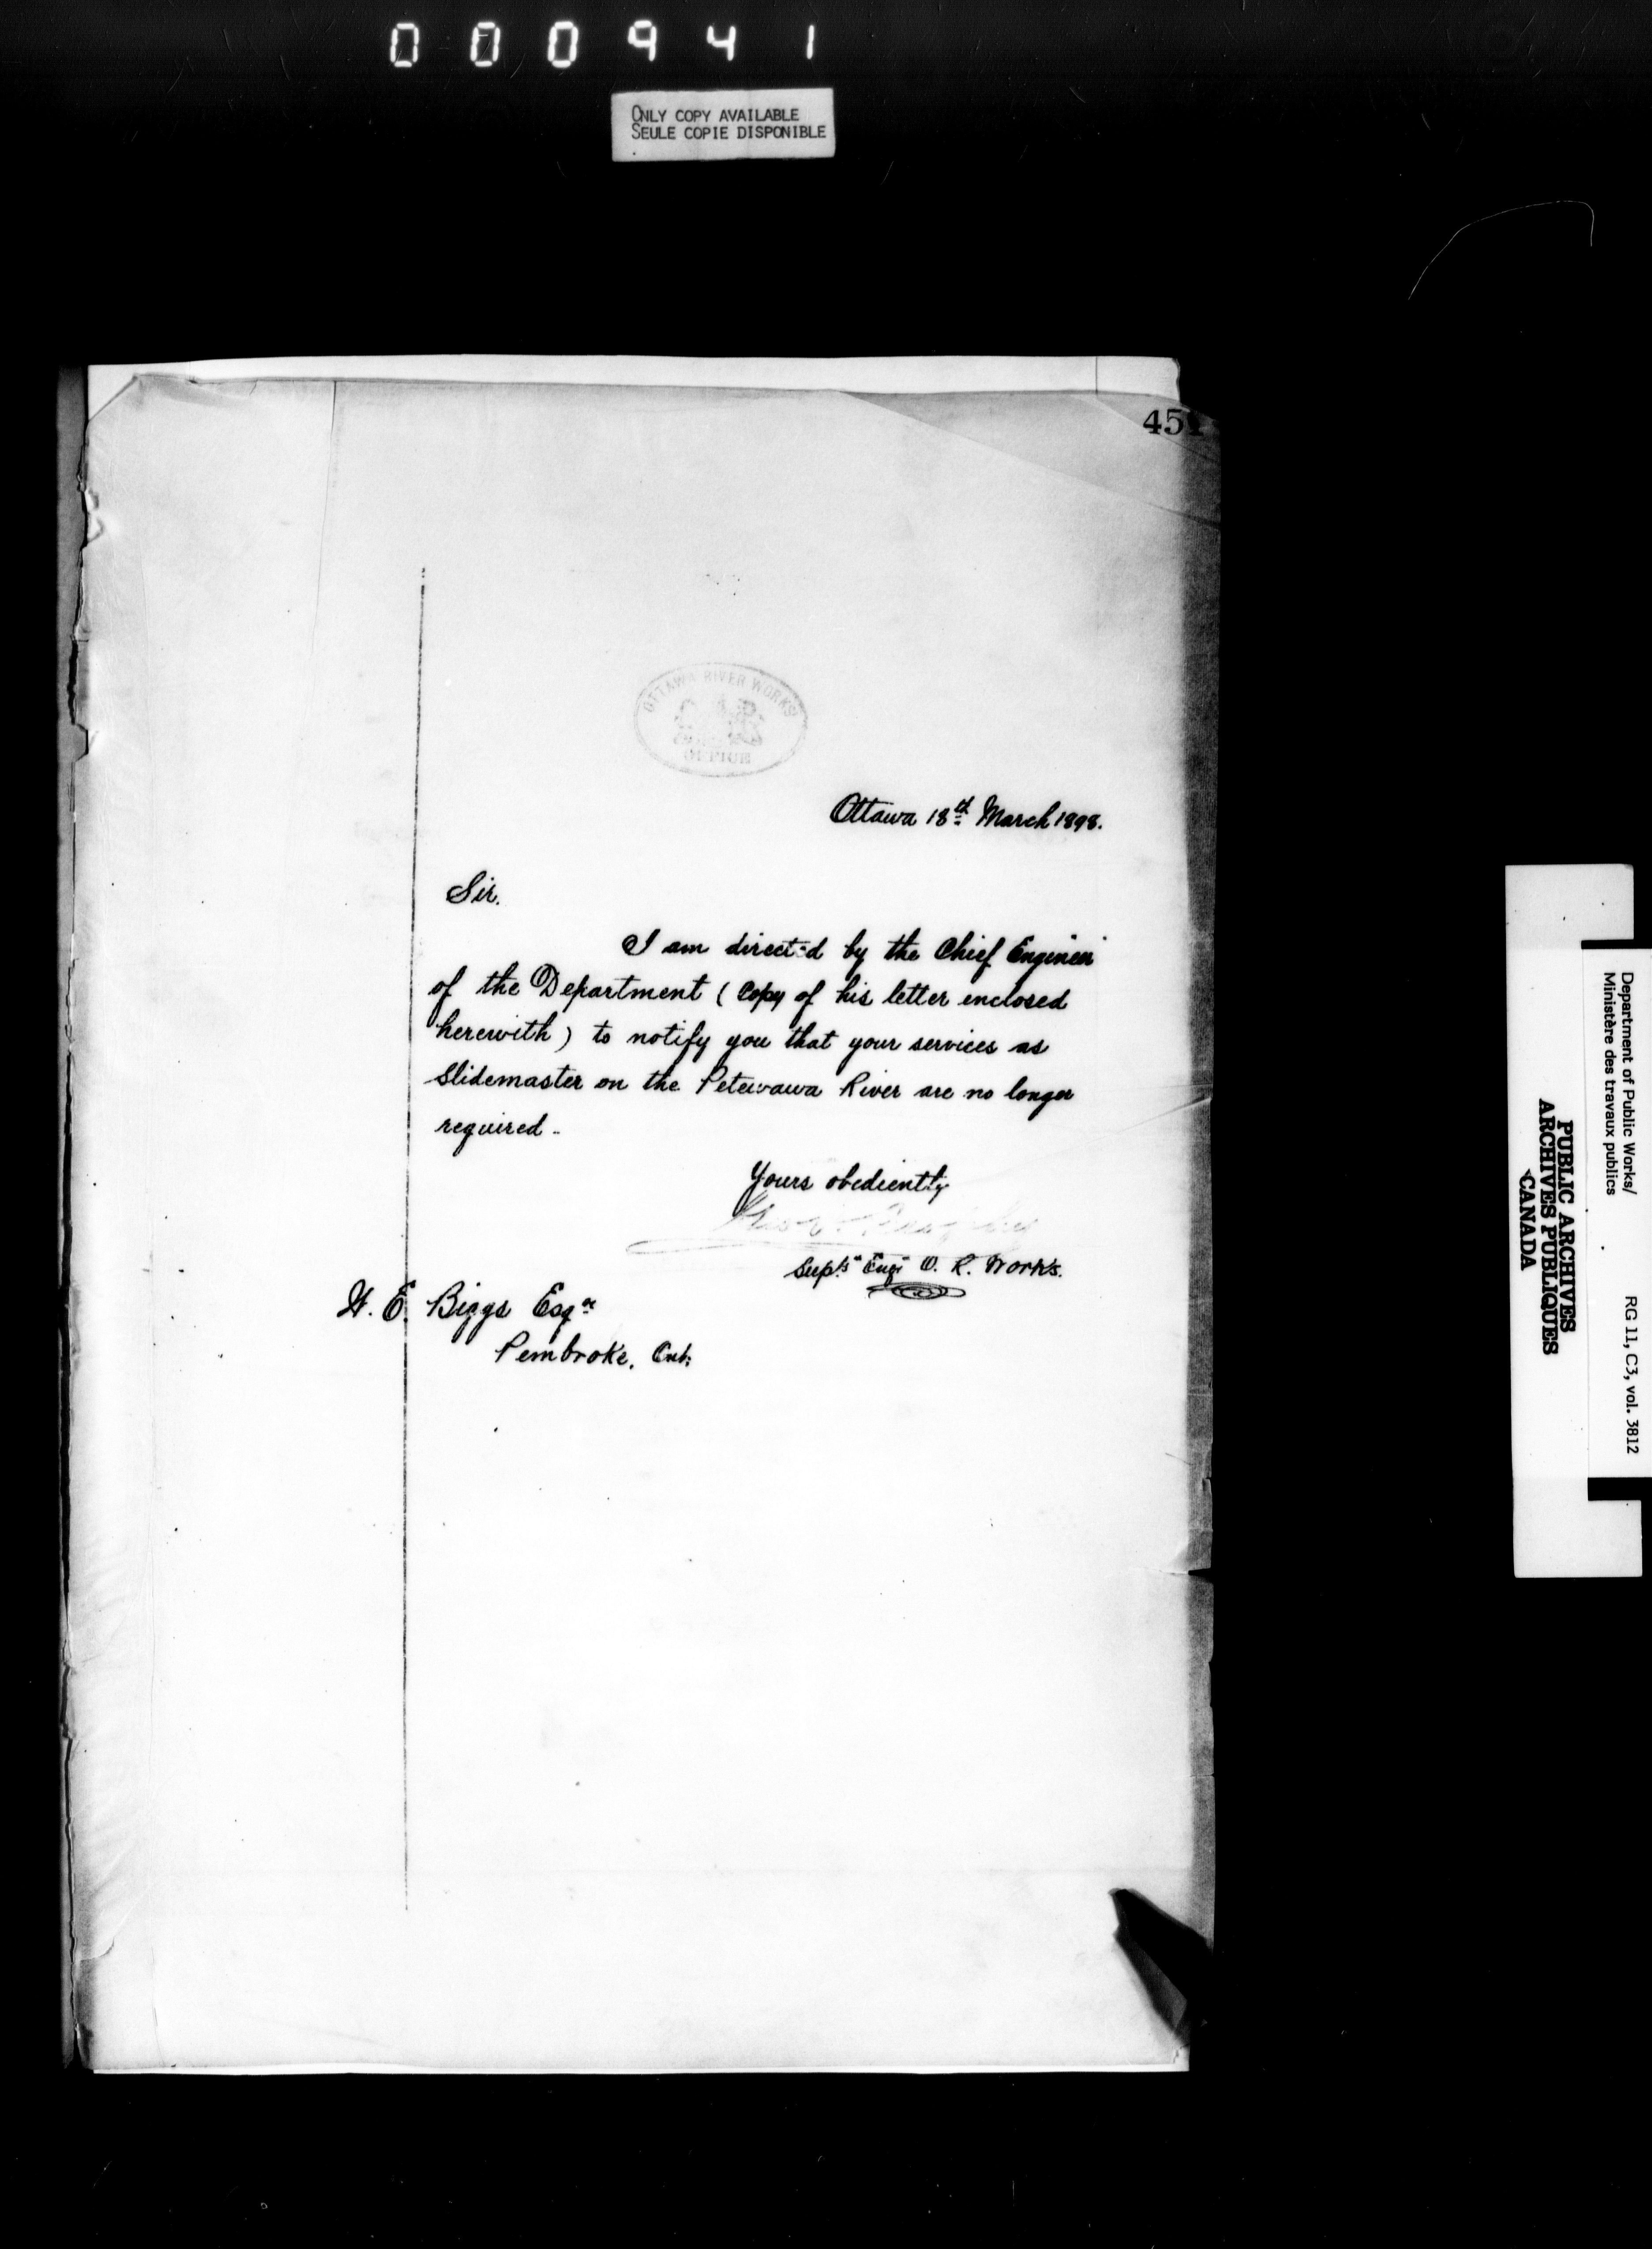 000941
ONLY COPY AVAILABLE
SEULE COPIE DISPONIBLE
45
OTTAWA RIVER WORKS
OFFICE
Ottawa 18th March 1898.
Sir.
I am directed by the Chief Engineer
of the Department (Copy of his letter enclosed
herewith) to notify you that your services as
Slidemaster on the Petewawa River are no longer
required.
Yours obediently
Supt. Engr O. R. Works.
H. E. Biggs Esqre
Pembroke. Ont:
Department of Public Works/
Ministère des travaux publics
RG 11, C3, vol. 3812
PUBLIC ARCHIVES
ARCHIVES PUBLIQUES
CANADA